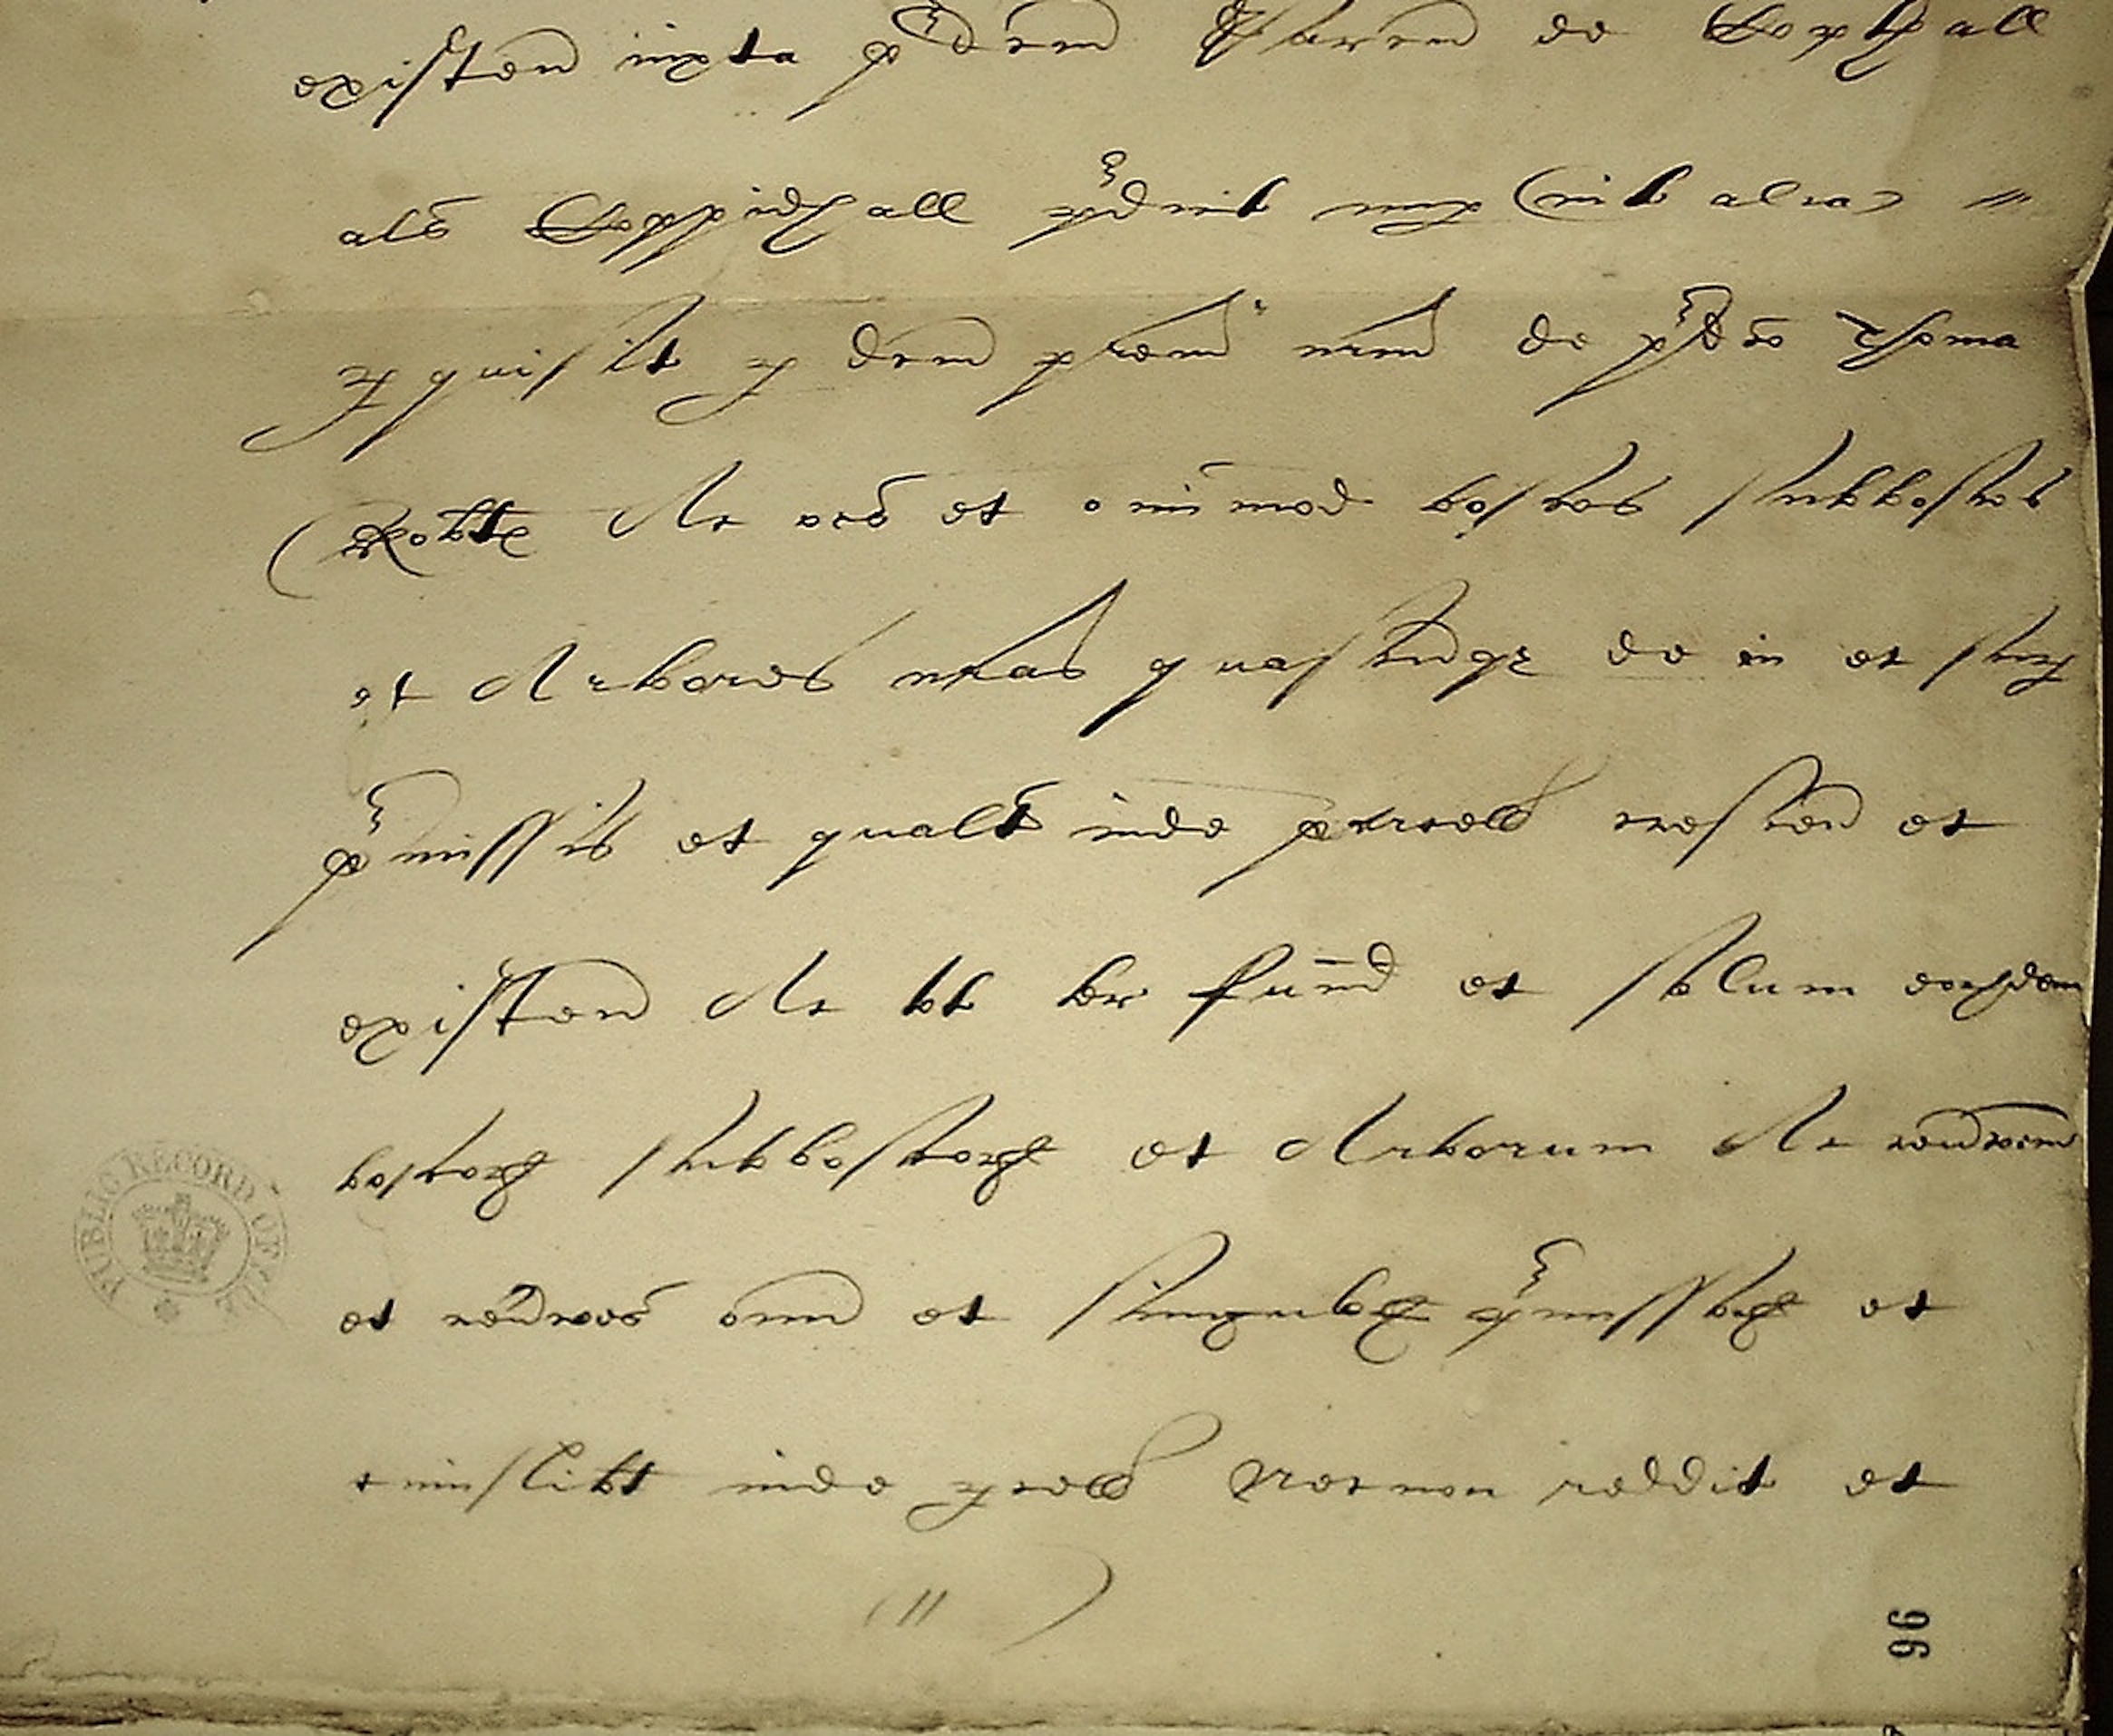 existen iuxta p'dcm Parcm de Copthall
als Coppidhall p'dict nup (int alia)
p quisit p dcm prem nrm de p'dco Thoma
Robte Ac oes et oi'mod boscos subboscos
et Arbores nras quascunqz de in et sup
p'missis et qualt inde parcell crescen et
existen Ac tot ter fund et solum eorsdem
boscorz subboscorz et Arborum Ac revercom
et revercoes omn et singulorz p'missorz et
cuiuslibt inde pcell Necnon reddit et
(11)
PUBLIC RECORD OFFICE
96